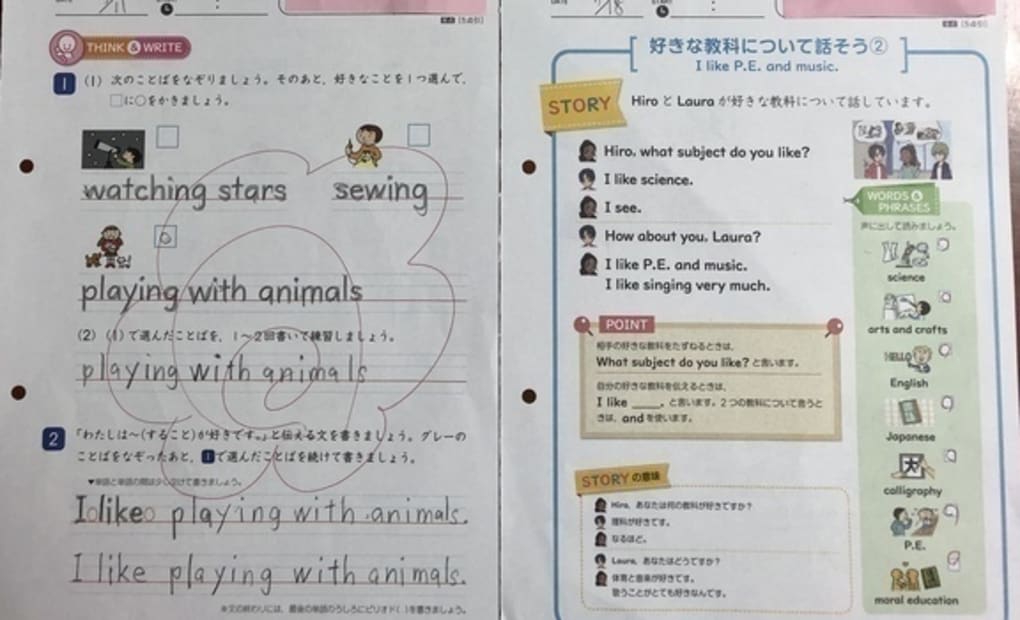 THINK & WRITE
1 (1) 次のことばをなぞりましょう。そのあと、好きなことを1つ選んで、
□に○をかきましょう。
watching stars
sewing
playing with animals
(2) (1)で選んだことばを、1～2回書いて練習しましょう。
playing with animals
2 「わたしは～(すること)が好きです。」と伝える文を書きましょう。グレーの
ことばをなぞったあと、1で選んだことばを続けて書きましょう。
▼単語と単語の間は少し空けて書きましょう。
I like playing with animals.
I like playing with animals.
※文の終わりには、最後の単語のうしろにピリオド(.)を書きましょう。
7/18
好きな教科について話そう②
I like P.E. and music.
STORY
HiroとLauraが好きな教科について話しています。
Hiro, what subject do you like?
I like science.
I see.
How about you, Laura?
I like P.E. and music.
I like singing very much.
POINT
相手の好きな教科をたずねるときは、
What subject do you like? と言います。
自分の好きな教科を伝えるときは、
I like ____. と言います。2つの教科について言うと
きは、andを使います。
STORYの意味
Hiro、あなたは何の教科が好きですか？
理科が好きです。
なるほど。
Laura、あなたはどうですか？
体育と音楽が好きです。
歌うことがとても好きなんです。
WORDS &
PHRASES
声に出して読みましょう。
science
arts and crafts
HELLO
English
Japanese
大
calligraphy
P.E.
moral education